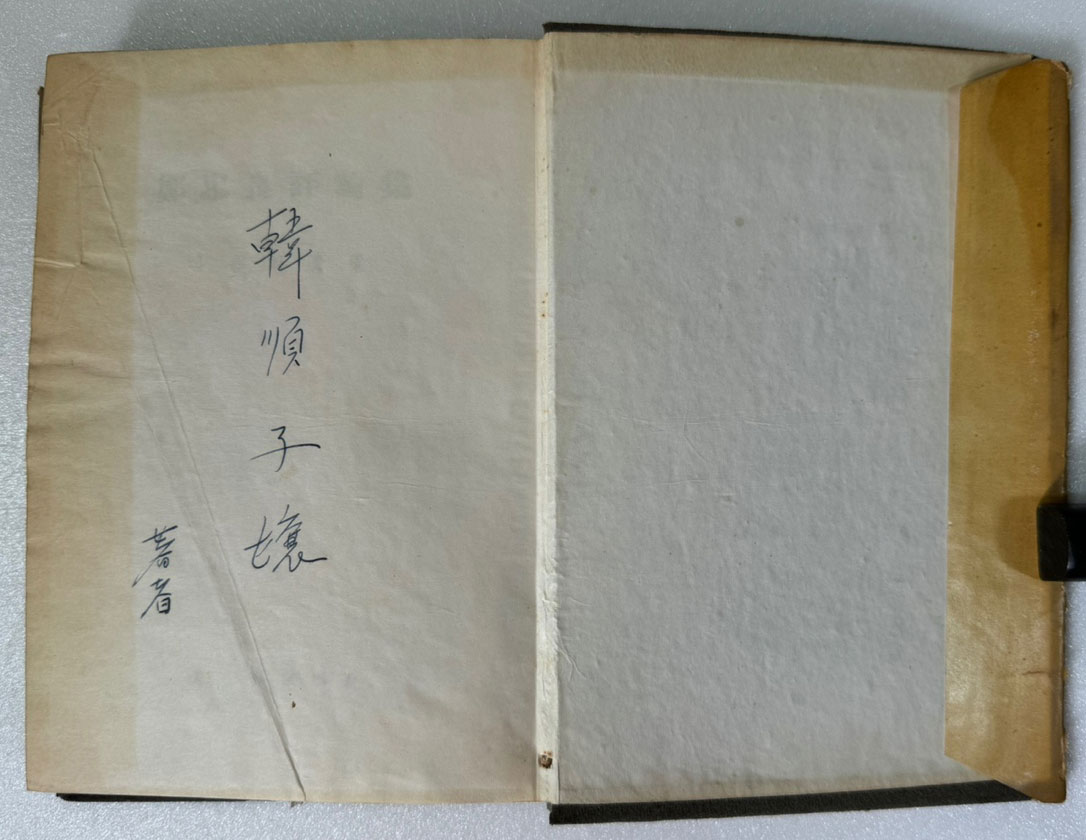 韓順子孃
著者